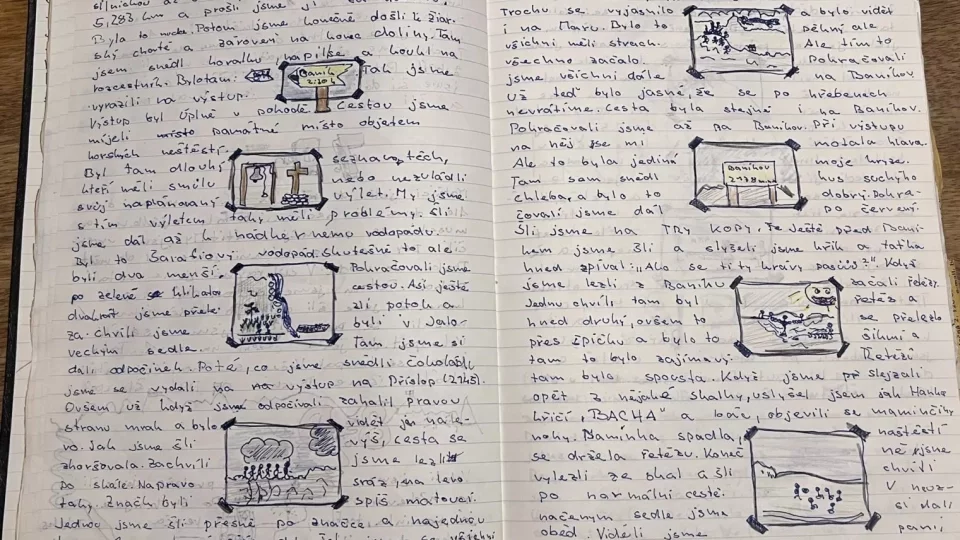 silničkou až
5,283 km a prošli jsme ji
Byla to nuda. Potom jsme konečně došli k Žiar-
ský chatě a zároveň na konec doliny. Tam
jsem snědl horalku, napil se a koukl na
rozcestník. Bylo tam:
Baník
2:20 h
Tak jsme
vyrazili na výstup.
Výstup byl úplně v pohodě. Cestou jsme
míjeli místo památné místo objetem
horských neštěstí.
Byl tam dlouhý
seznam těch,
kteří měli smůlu
nebo nezvládli
svůj naplánovaný
výlet. My jsme
s tím výletem taky měli problémy. Šli
jsme dál až k nádhernému vodopádu.
Byl to Šarafiový vodopád. Skutečně to ale
byli dva menší.
Pokračovali jsme
po zelené
cestou. Asi ještě
dvakrát jsme přele-
zli potok a
za chvíli jsme
byli v Jalo-
veckým sedle.
Tam jsme si
dali odpočinek. Poté, co jsme snědli čokoládu,
jsme se vydali na výstup na Príslop (2145).
Ovšem už když jsme odpočívali zahalil pravou
stranu mrak a bylo
vidět jen nale-
vo. Jak jsme šli
výš, cesta se
zhoršovala. Zachvíli
jsme lezli
po skále. Napravo
sráz, na levo
taky. Značk byli
spíš matoucí.
Jednou jsme šli přesně po značce a najednou
Trochu se vyjasnilo
a bylo vidět
i na Maru. Bylo to
pěkný ale
všichni měli strach.
Ale tím to
všechno začalo.
Pokračovali
jsme všichni dále
na Baníkov.
Už teď bylo jasné, že se po hřebenech
nevrátíme. Cesta byla stejně i na Baníkov.
Pokračovali jsme až na Baníkov. Při výstupu
na něj se mi
motala hlava.
Ale to byla jediná
moje krize.
Baníkov
2178 m.n.m
Tam sem snědl
kus suchýho
chleba, a bylo to
dobrý. Pokra-
čovali jsme dál
po červený.
Šli jsme na TRY KOPY. Ještě před Baní-
kem jsme šli a slyšeli jsme křik a taťka
hned zpíval: „Ako se ti ty hrávy pasúú?". Když
jsme lezli z Baníku
začali řetězy.
Jednu chvíli tam byl
řetěz a
hned druhý, ovšem to
se přelezlo
přes špičku a bylo to
šikmí a
tam to bylo zajímavý.
Řetězů
tam bylo spousta. Když jsme slejzali
opět z nějaké skalky, uslyšel jsem jak Hanka
křičí „BACHA" a objevili se maminčiny
nohy. Maminka spadla,
naštěstí
se držela řetězu. Konec
vylezli ze skal a šli
chvíli
po normální cestě.
V
sedle jsme
si dali
oběd. Viděli jsme
paní,